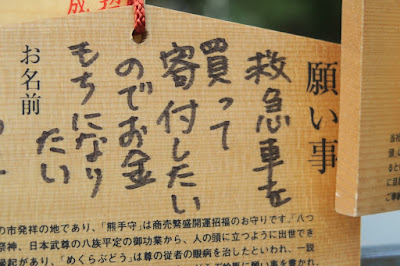 願い事
救急車を
買って
寄付したい
のでお金
もちになり
たい
お名前
の市発祥の地であり、「熊手守」は商売繁盛開運招福のお守りです。八つ
祭神、日本武尊の八族平定の御功業から、人の頭に立つように出世でき
縁起があり、「めくらぶどう」は尊の従者の眼病を治したといわれ、一説
に願い事を書かれ